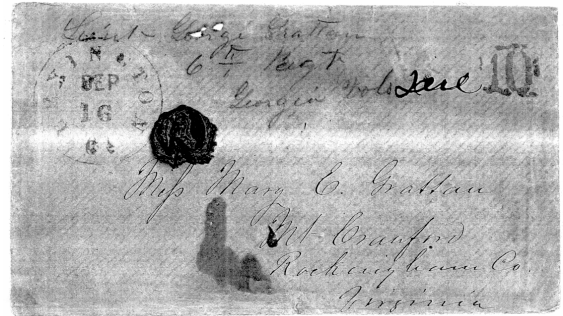 Lieut George Grattan
6th Regt
Georgia Vols
Due 10
SEP
16
Miss Mary C. Grattan
Mt Crawford
Rockingham Co.
Virginia